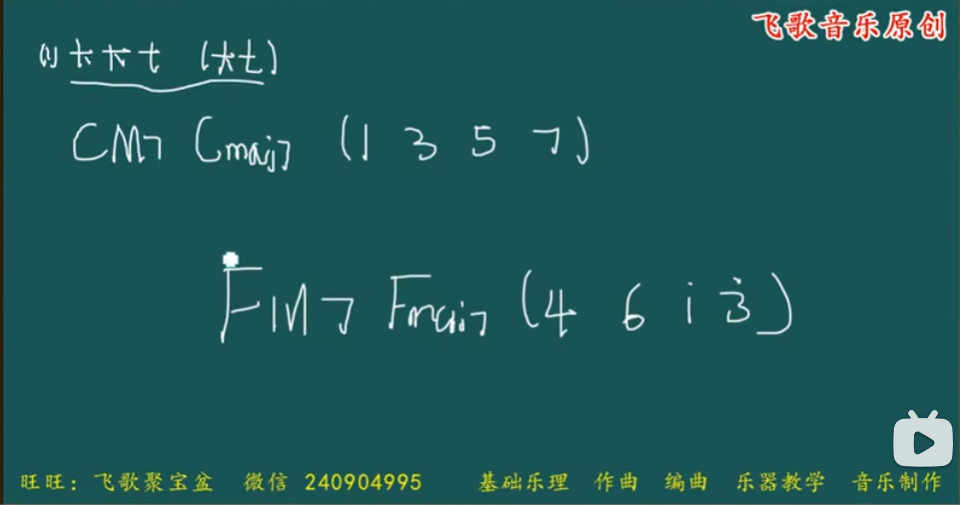 飞歌音乐原创
(1) 大大七 (大七)
CM7 Cmaj7 (1 3 5 7)
FM7 Fmaj7 (4 6 i 3̇)
旺旺：飞歌聚宝盆 微信 240904995 基础乐理 作曲 编曲 乐器教学 音乐制作